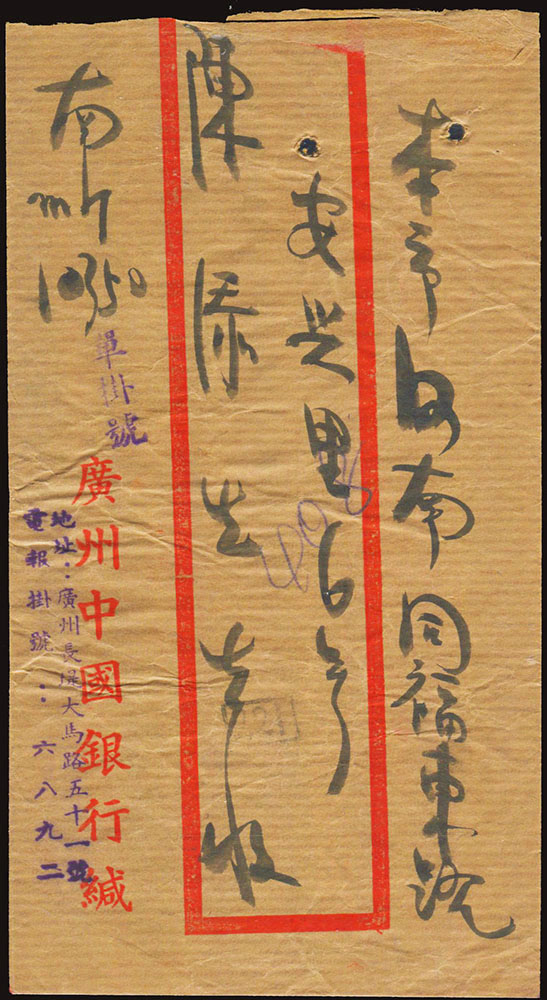 本市河南同福東路
安興里6号
陳添先生收
南
10350
單掛號
廣州中國銀行緘
地址：廣州長堤大馬路五十一號
電報掛號：六八九二
408